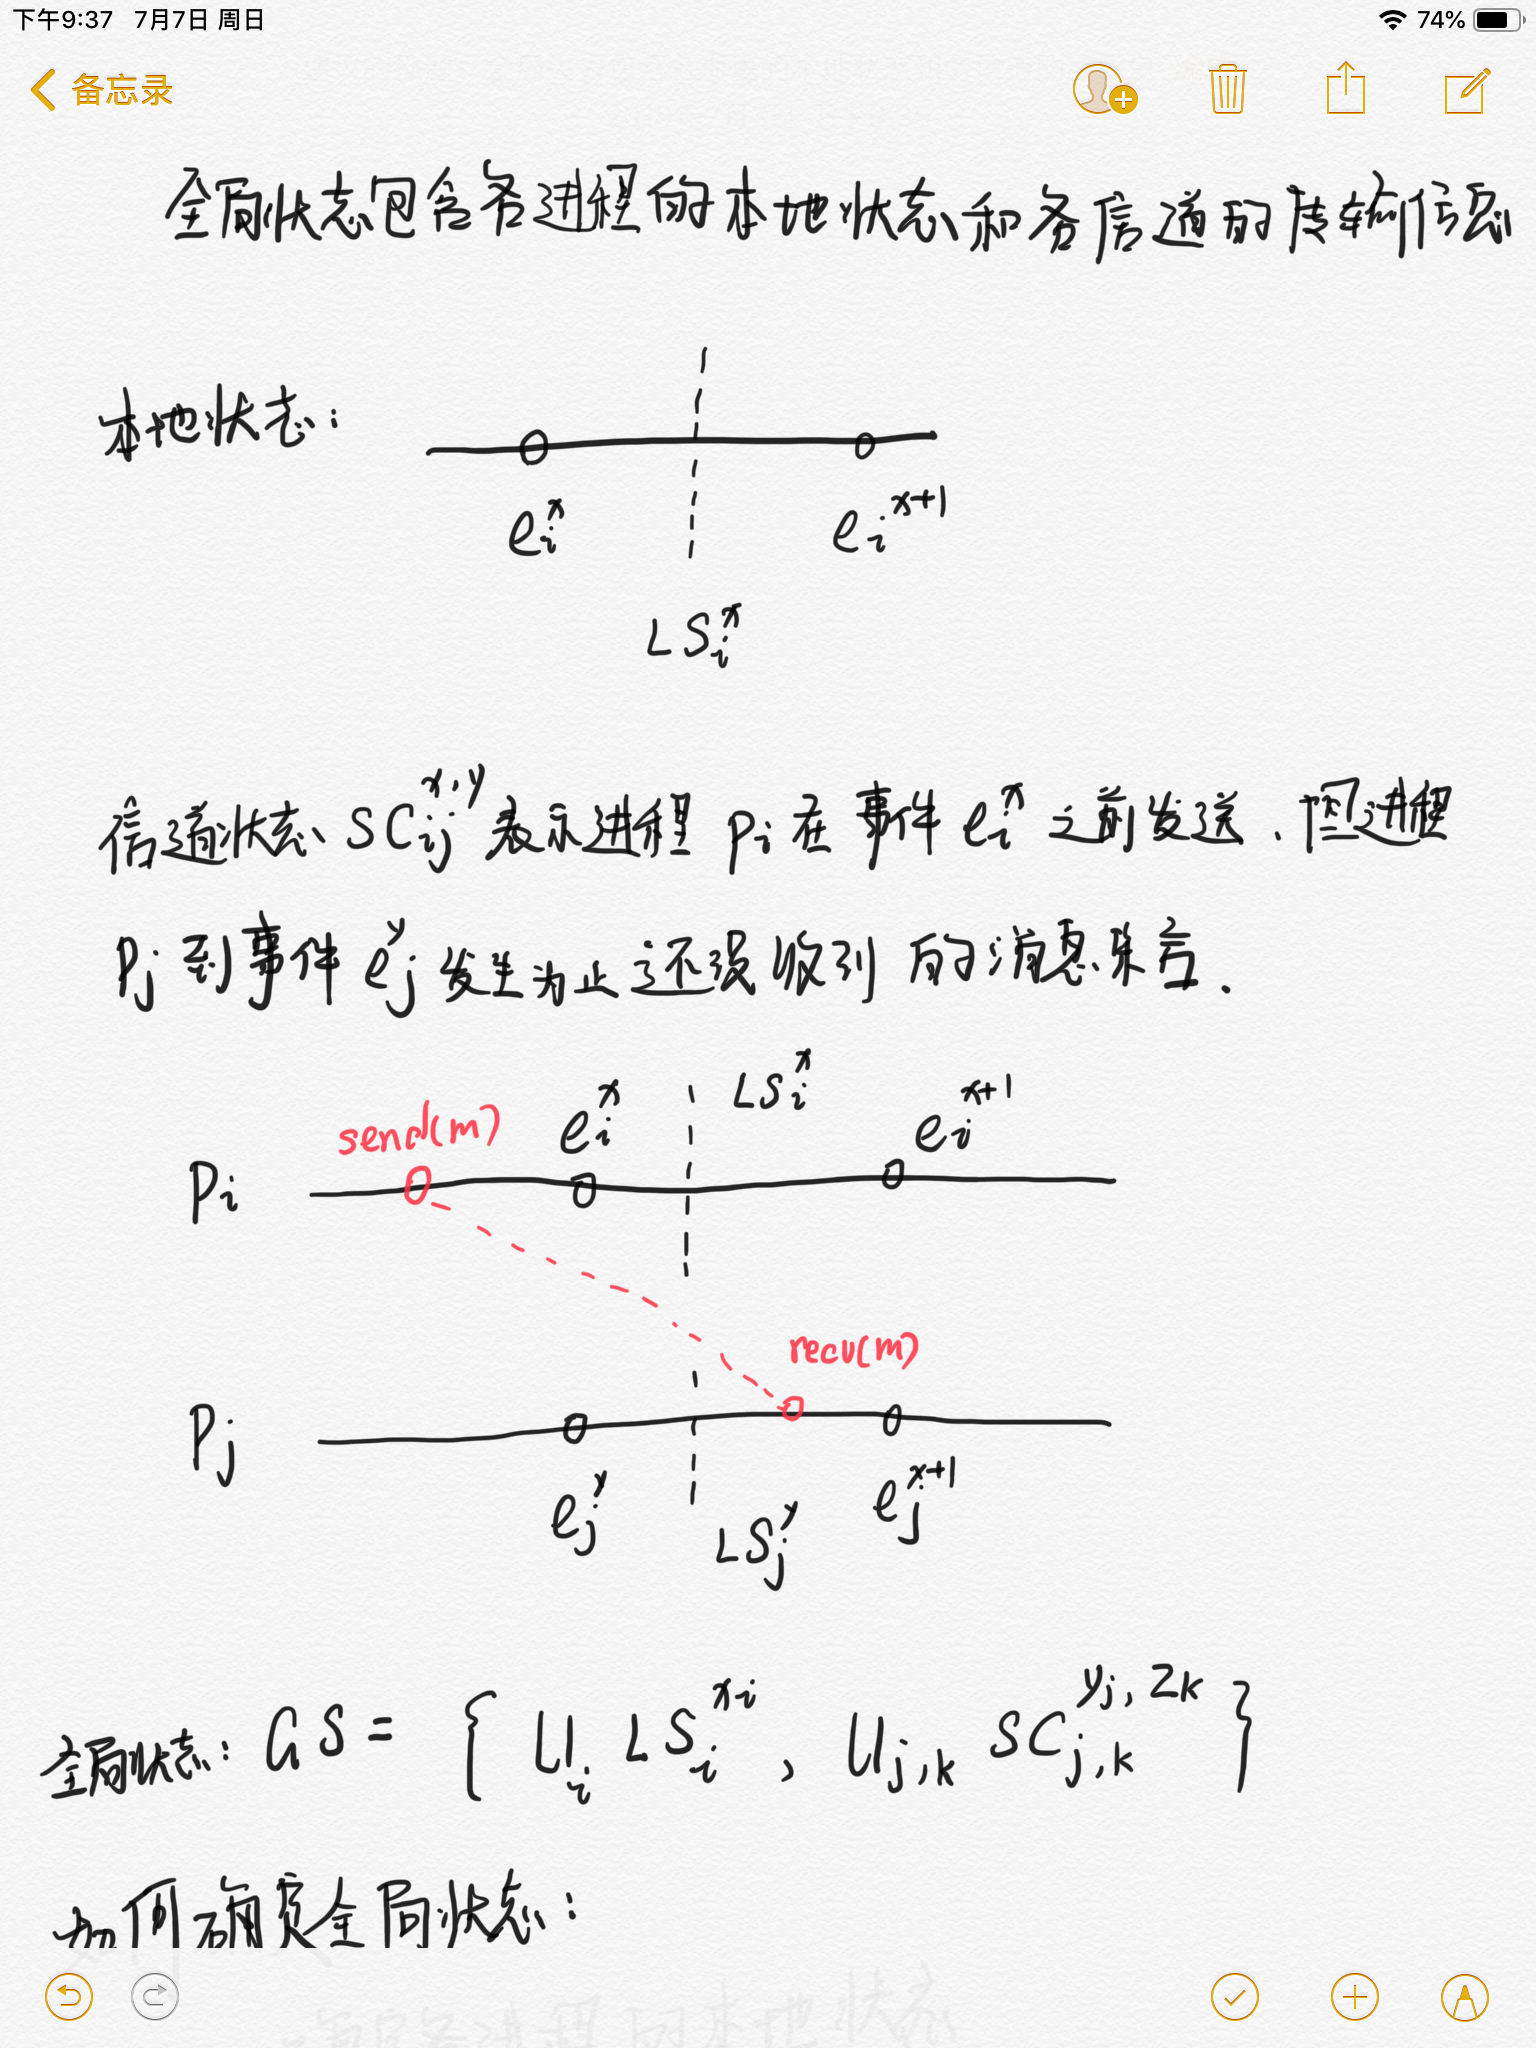 下午9:37 7月7日 周日 74%
备忘录
全局状态包含各进程的本地状态和各信道的传输信息
本地状态:
e_i^x e_i^{x+1}
LS_i^x
信道状态 SC_{ij}^{x,y} 表示进程 p_i 在事件 e_i^x 之前发送、但进程
P_j 到事件 e_j^y 发生为止还没收到的消息集合.
LS_i^x
send(m) e_i^x e_i^{x+1}
P_i
recv(m)
P_j
e_j^y LS_j^y e_j^{x+1}
全局状态: GS = { U_i LS_i^{x_i} , U_{j,k} SC_{j,k}^{y_j, z_k} }
如何确定全局状态:
的本地状态